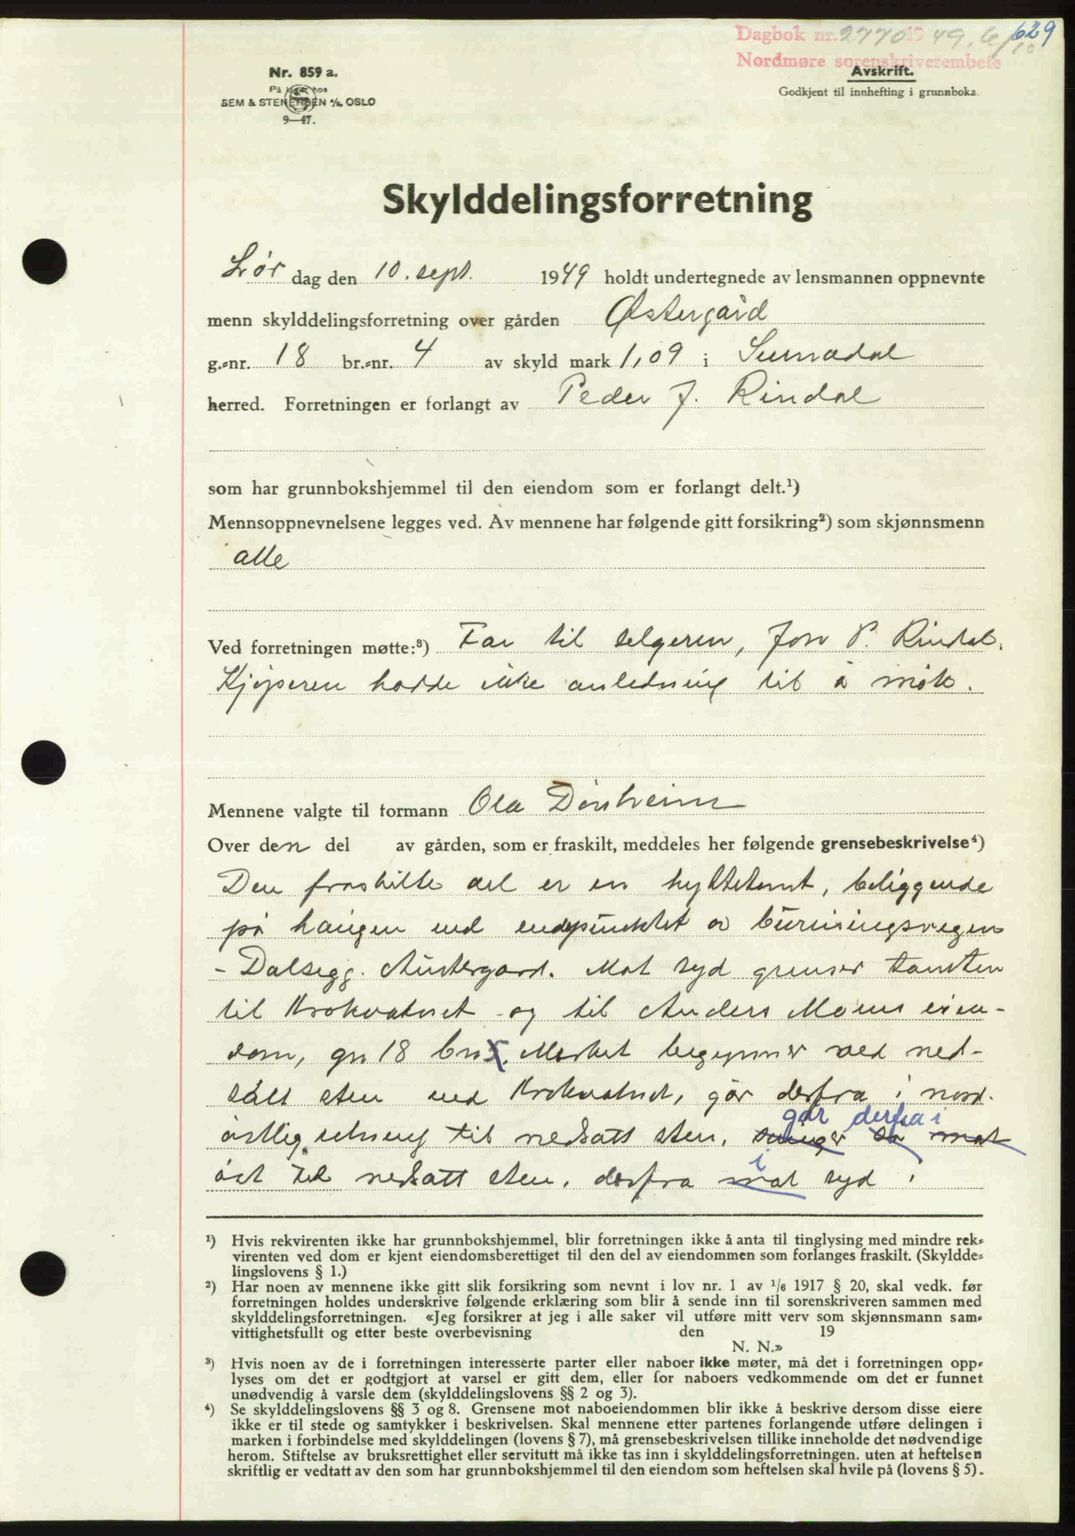 Dagbok nr. 2770 19 49. 6/10 629
Nordmøre sorenskriverembete
Avskrift.
Godkjent til innhefting i grunnboka.
Nr. 859 a.
På lager hos
SEM & STENERSEN A/S, OSLO
9—47.
Skylddelingsforretning
Lør dag den 10. sept. 1949 holdt undertegnede av lensmannen oppnevnte
menn skylddelingsforretning over gården Østergård
g.-nr. 18 br.-nr. 4 av skyld mark 1,09 i Surnadal
herred. Forretningen er forlangt av Peder J. Rindal
som har grunnbokshjemmel til den eiendom som er forlangt delt.¹)
Mennsoppnevnelsene legges ved. Av mennene har følgende gitt forsikring²) som skjønnsmenn
alle
Ved forretningen møtte:³) Far til selgeren, Jon P. Rindal.
Kjøperen hadde ikke anledning til å møte.
Mennene valgte til formann Ola Dønheim
Over den del av gården, som er fraskilt, meddeles her følgende grensebeskrivelse⁴)
Den fraskilte del er en hyttetomt, beliggende
på haugen ved endepunktet av bureisingsvegen
- Dalsegg - Austergard. Mot syd grenser tomten
til Krokvatnet og til Anders Moens eien-
dom, gn 18 bn 5. Merket begynner ved ned-
satt sten ved Krokvatnet, går derfra i nord-
østlig retning til nedsatt sten, svinger så mot går derfra i
øst til nedsatt sten, derfra mot i syd i
¹) Hvis rekvirenten ikke har grunnbokshjemmel, blir forretningen ikke å anta til tinglysing med mindre rek-
virenten ved dom er kjent eiendomsberettiget til den del av eiendommen som forlanges fraskilt. (Skyldde-
lingslovens § 1.)
²) Har noen av mennene ikke gitt slik forsikring som nevnt i lov nr. 1 av 1/6 1917 § 20, skal vedk. før
forretningen holdes underskrive følgende erklæring som blir å sende inn til sorenskriveren sammen med
skylddelingsforretningen. «Jeg forsikrer at jeg i alle saker vil utføre mitt verv som skjønnsmann sam-
vittighetsfullt og etter beste overbevisning den 19
N. N.»
³) Hvis noen av de i forretningen interesserte parter eller naboer ikke møter, må det i forretningen opp-
lyses om det er godtgjort at varsel er gitt dem, eller for naboers vedkommende om det er funnet
unødvendig å varsle dem (skylddelingslovens §§ 2 og 3).
⁴) Se skylddelingslovens §§ 3 og 8. Grensene mot naboeiendommen blir ikke å beskrive dersom disse eiere
ikke er til stede og samtykker i beskrivelsen. Skal mennene etter partenes forlangende utføre delingen i
marken i forbindelse med skylddelingen (lovens § 7), må grensebeskrivelsen tillike inneholde det nødvendige
herom. Stiftelse av bruksrettighet eller servitutt må ikke tas inn i skylddelingsforretningen, uten at heftelsen
skriftlig er vedtatt av den som har grunnbokshjemmel til den eiendom som heftelsen skal hvile på (lovens § 5).